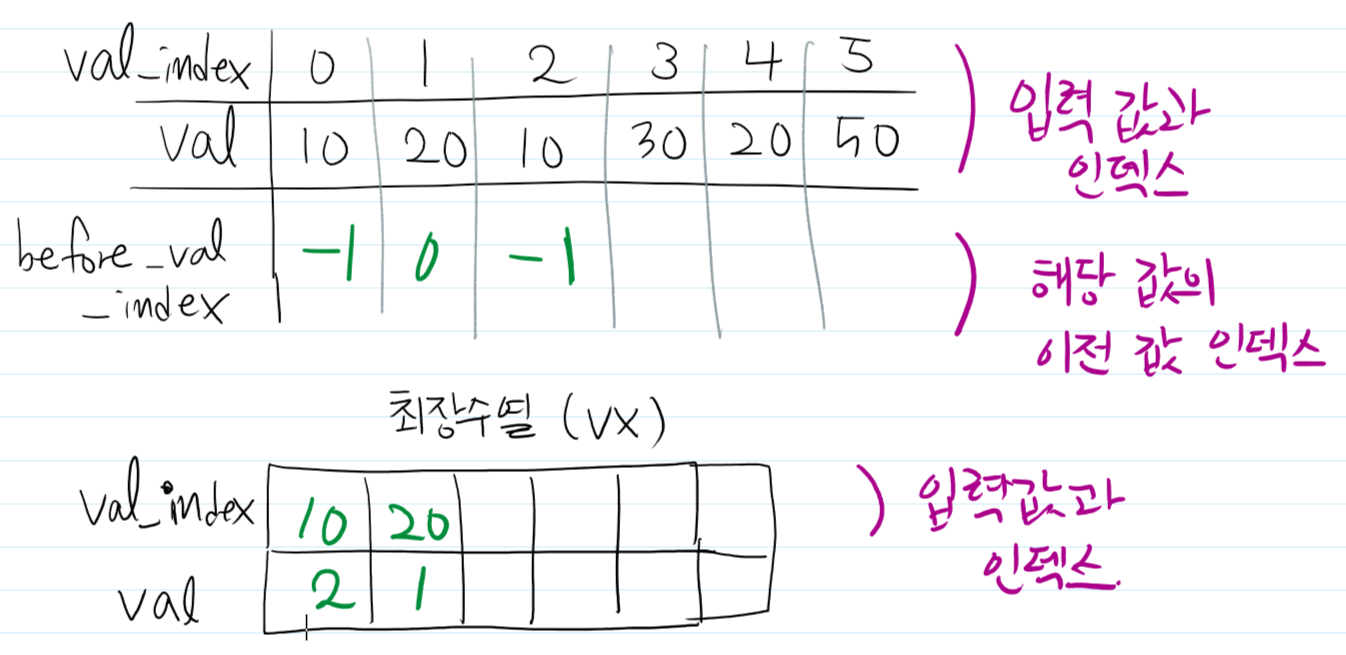 val_index 0 1 2 3 4 5
val 10 20 10 30 20 50
입력 값과
인덱스
before_val
_index
-1 0 -1
해당 값이
이전 값 인덱스
최장수열 (VX)
val_index 10 20
val 2 1
입력값과
인덱스.